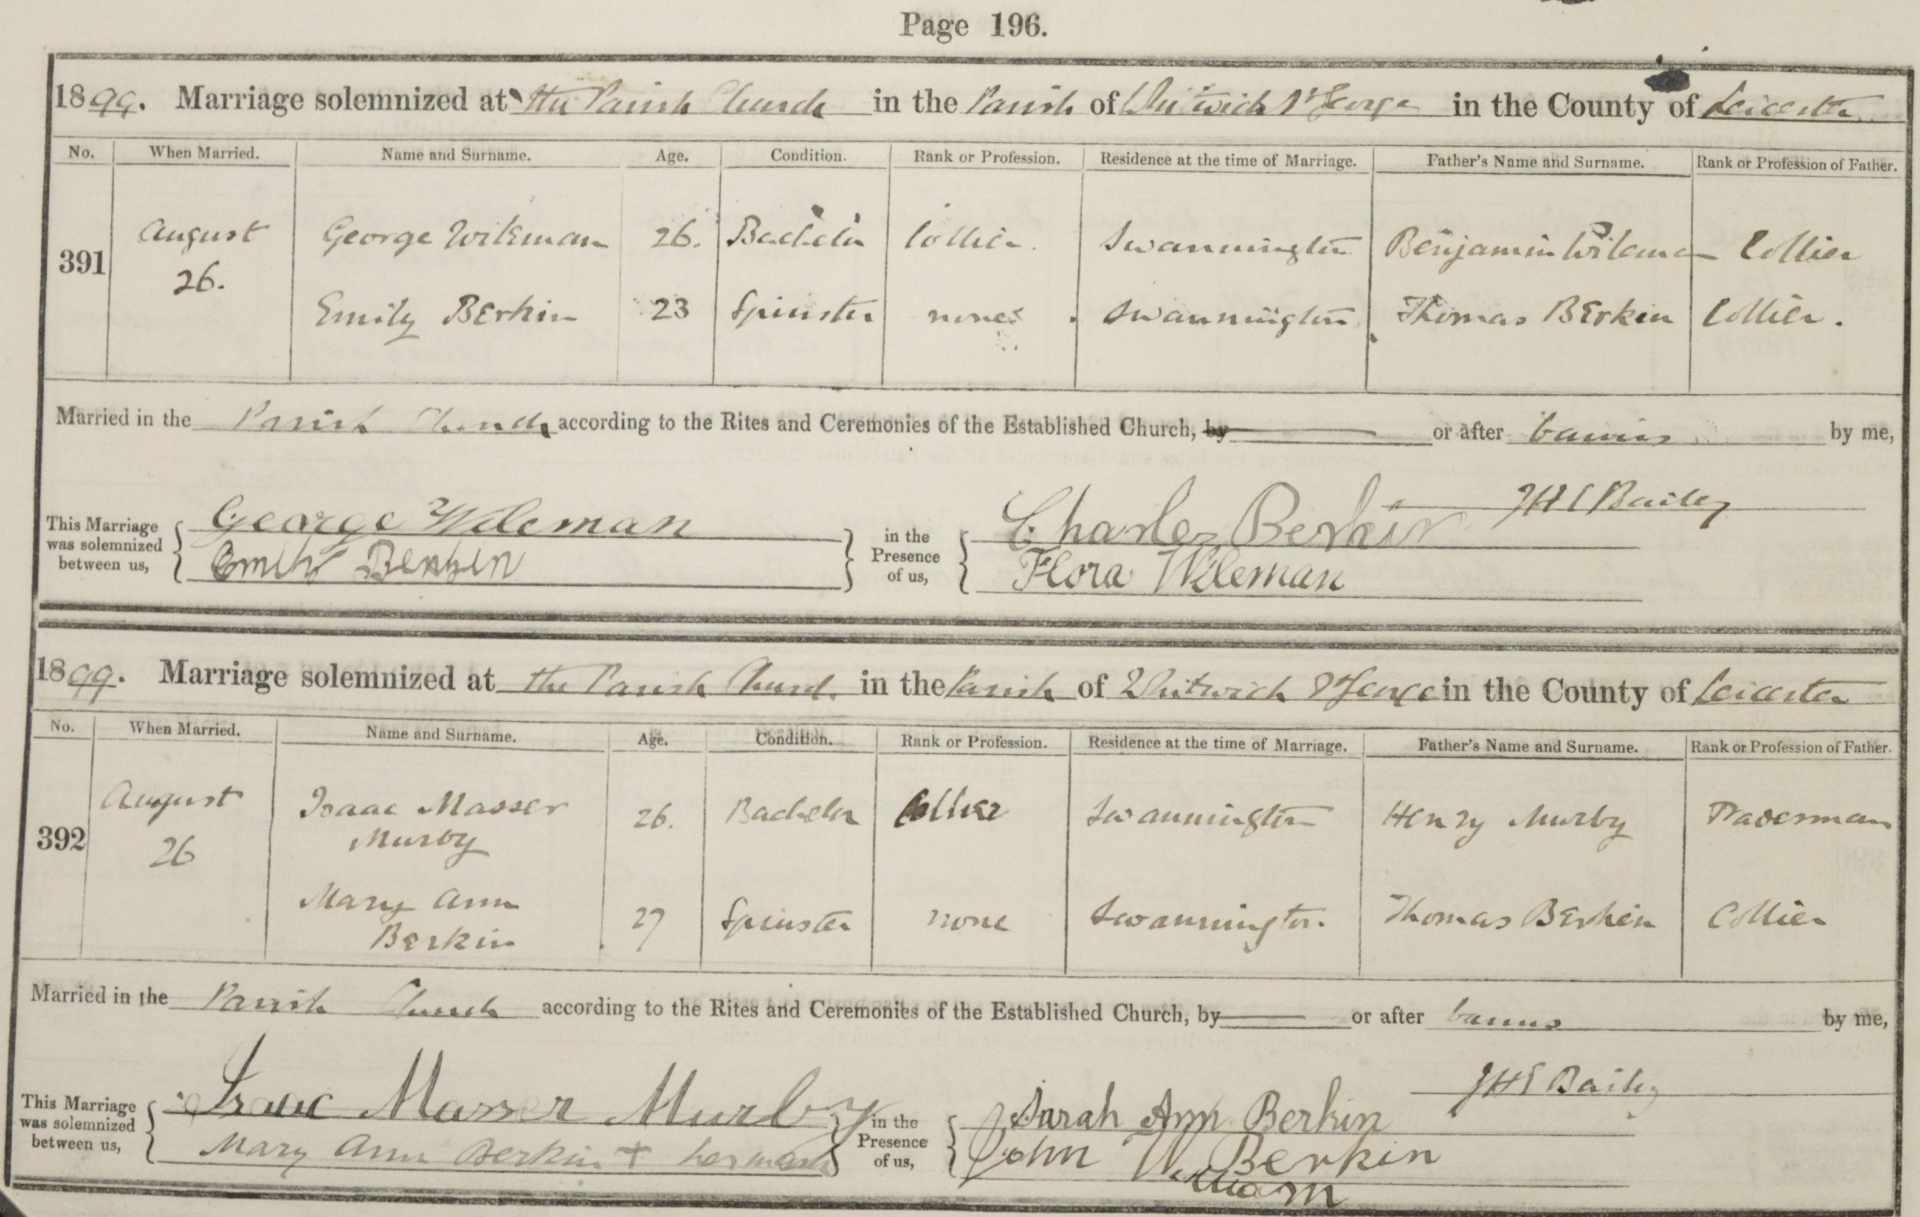 Page 196.
1899. Marriage solemnized at the Parish Church in the Parish of Whitwick St George in the County of Leicester
No. When Married. Name and Surname. Age. Condition. Rank or Profession. Residence at the time of Marriage. Father's Name and Surname. Rank or Profession of Father.
391 August 26. George Wileman 26. Bachelor Collier. Swannington Benjamin Wileman Collier
Emily Berkin 23 Spinster none Swannington Thomas Berkin Collier.
Married in the Parish Church according to the Rites and Ceremonies of the Established Church, by or after banns by me,
J H E Bailey
This Marriage was solemnized between us, George Wileman Emily Berkin in the Presence of us, Charles Berkin Flora Wileman
1899. Marriage solemnized at the Parish Church in the Parish of Whitwick St George in the County of Leicester
No. When Married. Name and Surname. Age. Condition. Rank or Profession. Residence at the time of Marriage. Father's Name and Surname. Rank or Profession of Father.
392 August 26 Isaac Masser Murby 26. Bachelor Collier Swannington Henry Murby
Mary Ann Berkin 27 Spinster none Swannington Thomas Berkin Collier
Married in the Parish Church according to the Rites and Ceremonies of the Established Church, by or after banns by me,
J H E Bailey
This Marriage was solemnized between us, Isaac Masser Murby Mary Ann Berkin + her mark in the Presence of us, Sarah Ann Berkin John W Berkin
William